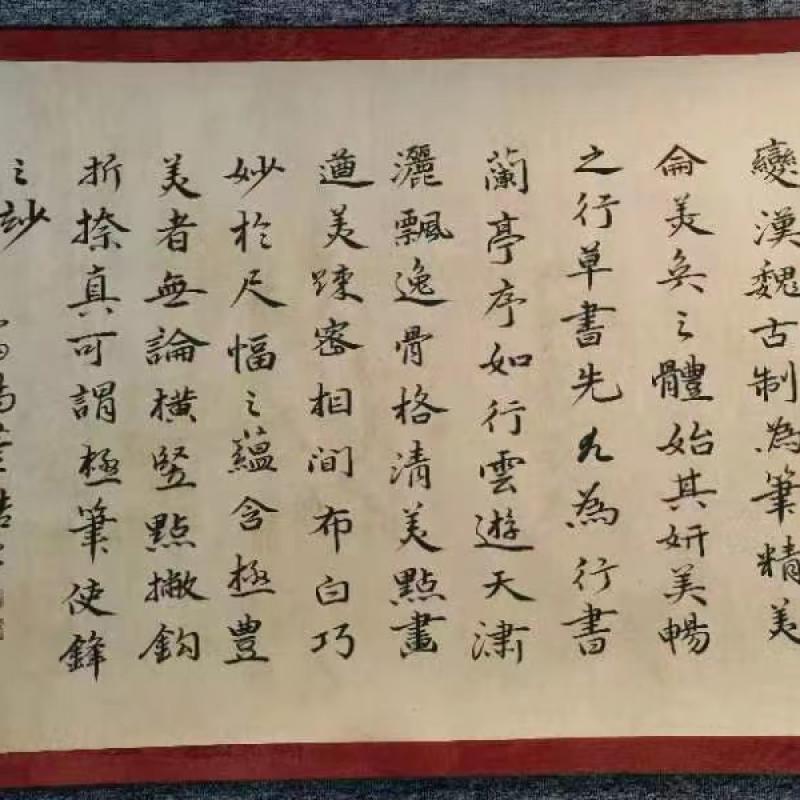 變漢魏古制為筆精美
侖美奐之體始其妍美暢
之行草書先尤為行書
蘭亭序如行雲遊天瀟
灑飄逸骨格清美點畫
遒美疎密相間布白巧
妙於尺幅之蘊含極豊
美者無論橫竪點撇鈎
折捺真可謂極筆使鋒
之玅